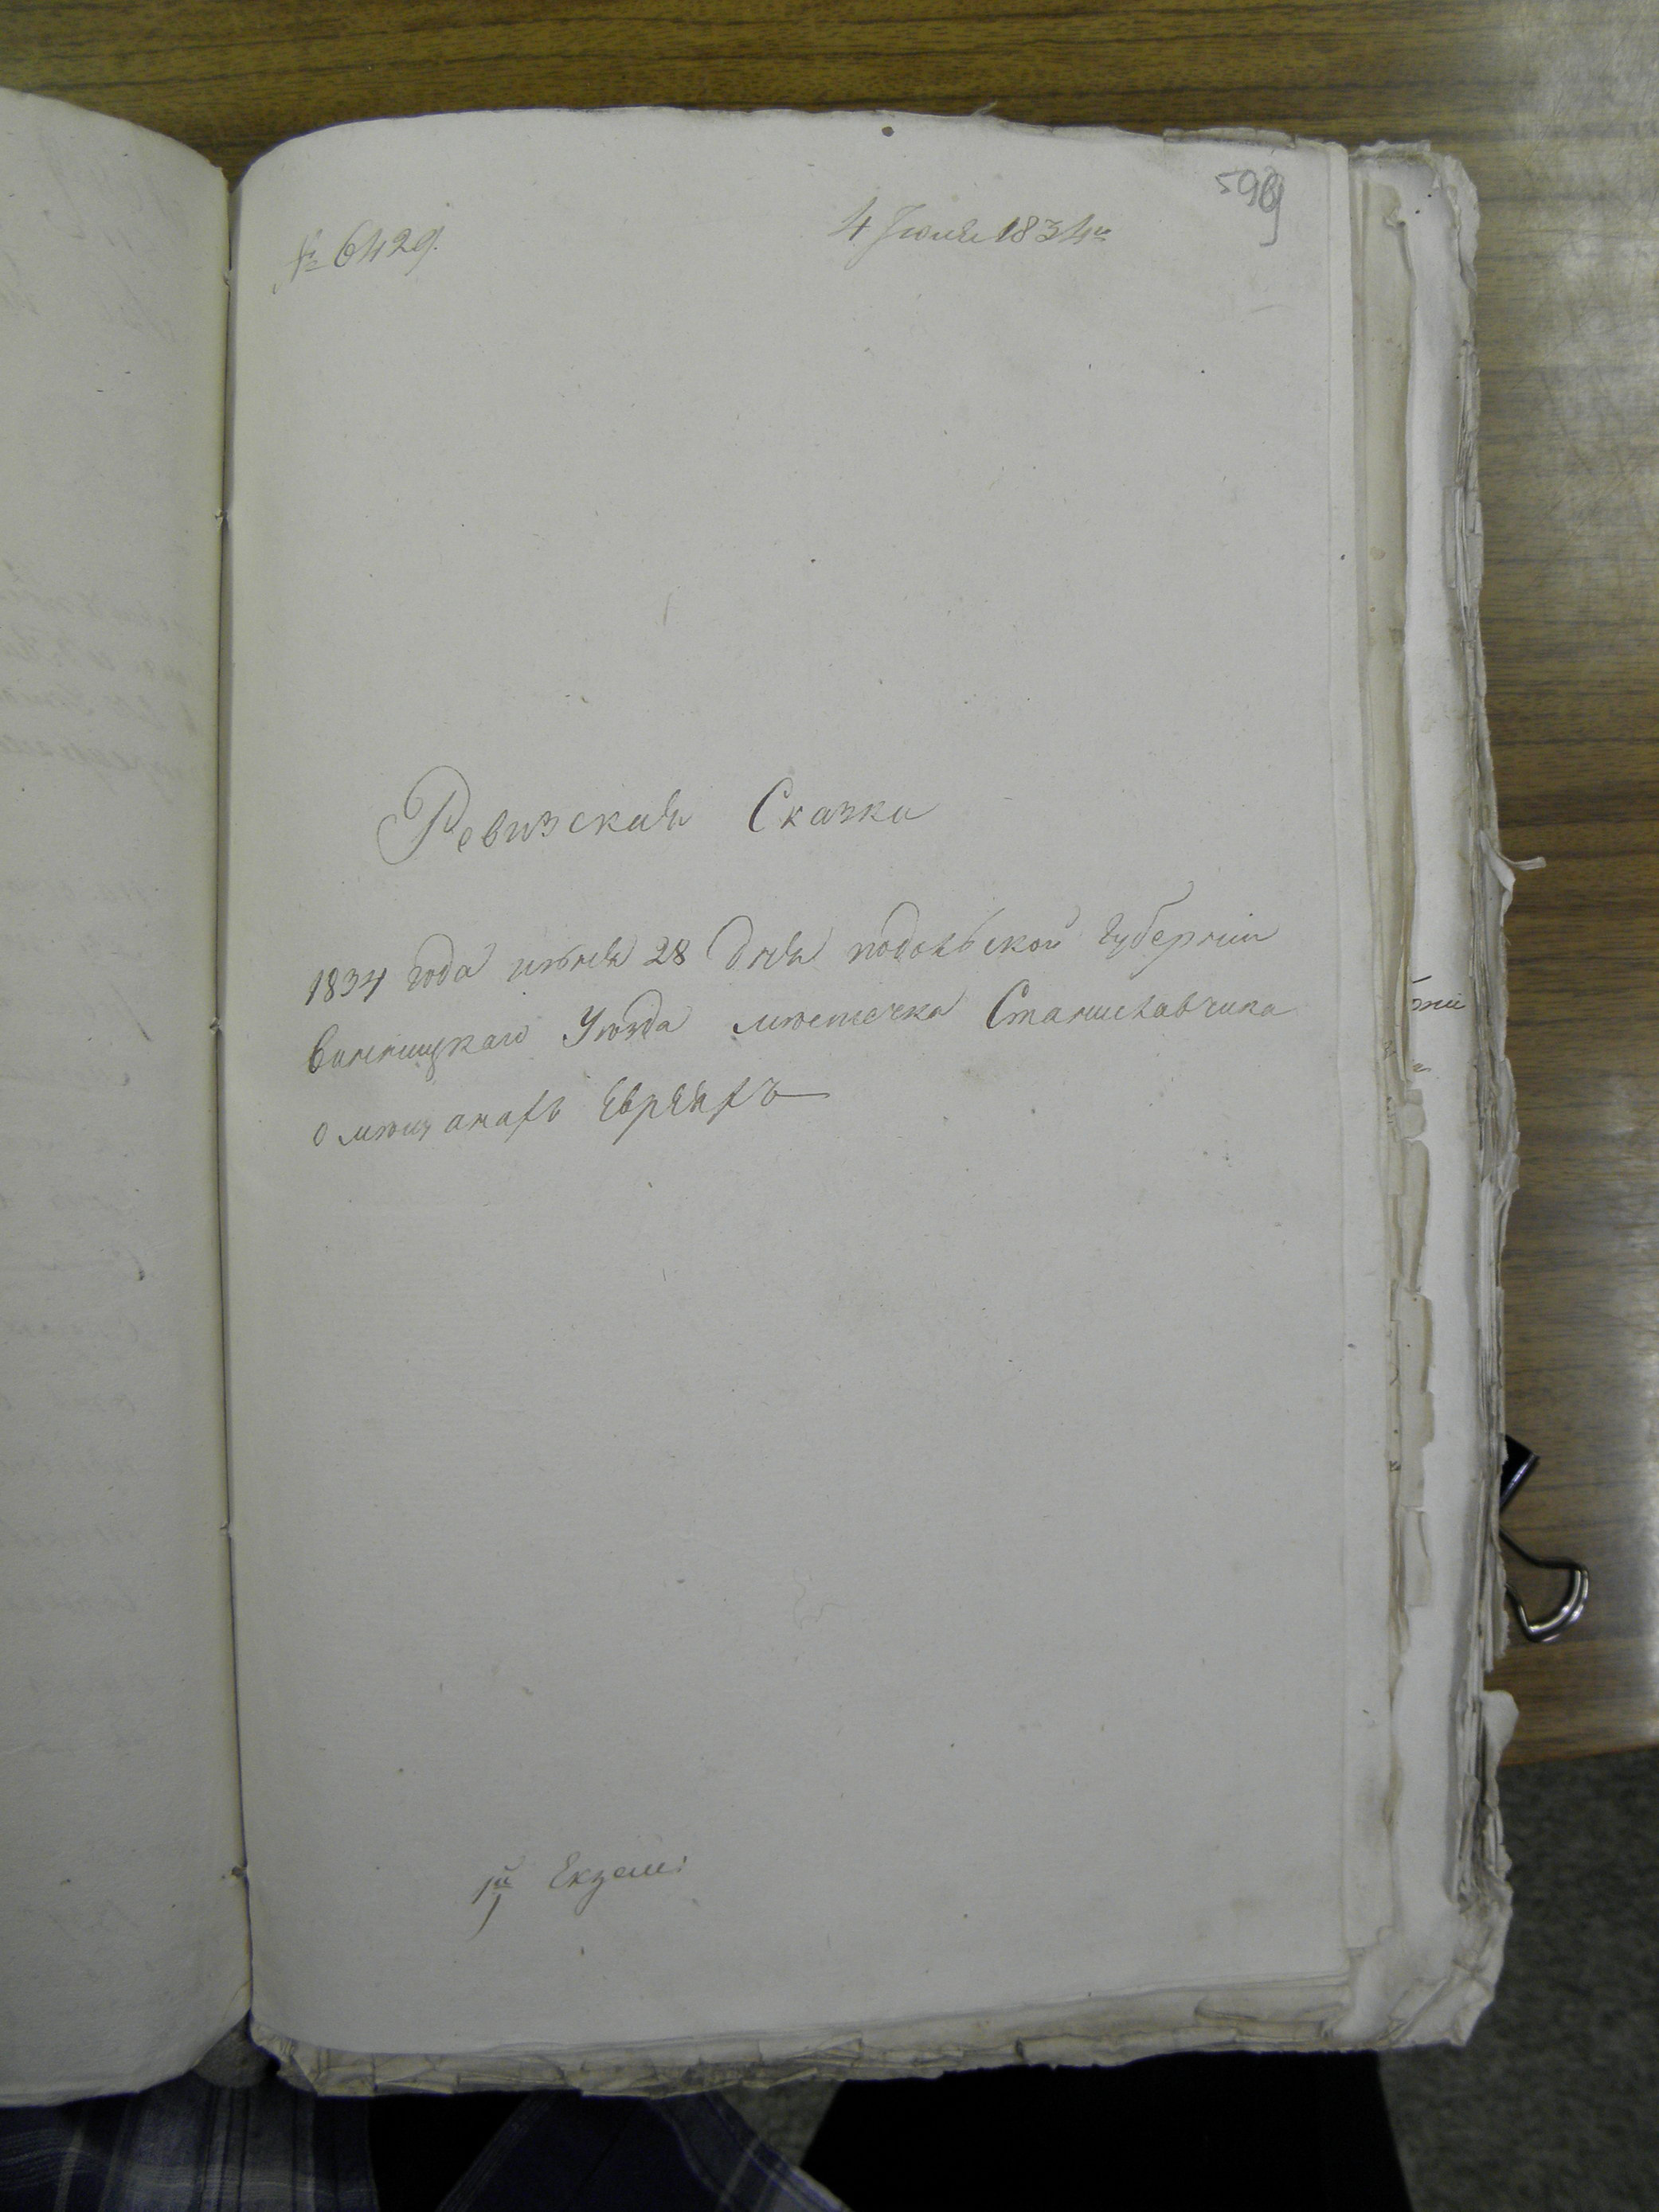 599
№ 6429.
4 Июля 1834го
Ревизская Сказка
1834 года июня 28 дня подольской губернии
винницкаго Уѣзда мѣстечка Станиславчика
о мѣщанахъ Евреяхъ
1й Екзем: